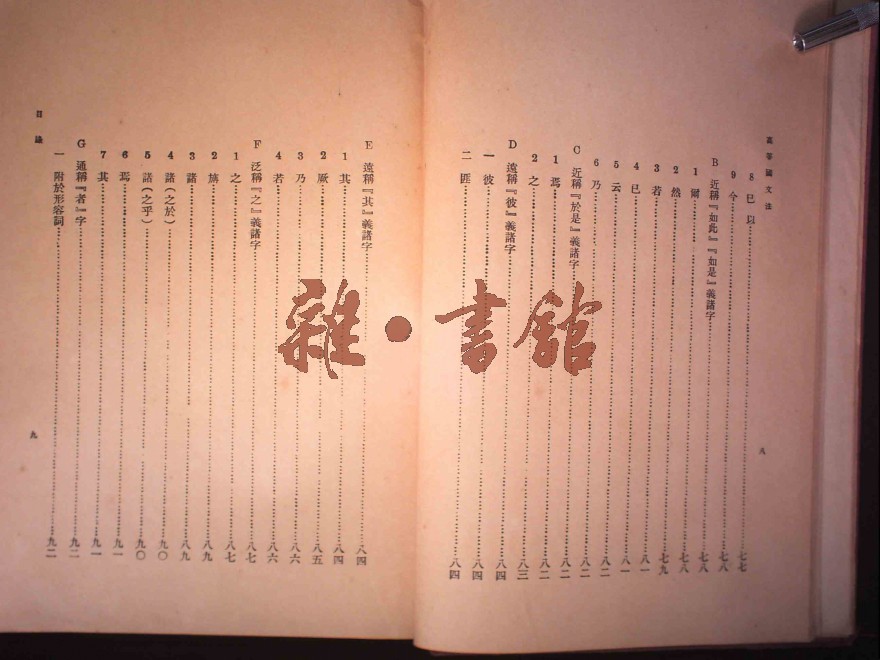 高等國文法
8 已以……七七
9 今……七八
B 近稱『如此』『如是』義諸字……七八
1 爾……七八
2 然……七九
3 若……八一
4 已……八一
5 云……八二
6 乃……八二
C 近稱『於是』義諸字……八二
1 焉……八二
2 之……八三
D 遠稱『彼』義諸字……八四
一 彼……八四
二 匪……八四
八
E 遠稱『其』義諸字……八四
1 其……八四
2 厥……八五
3 乃……八六
4 若……八六
F 泛稱『之』義諸字……八七
1 之……八七
2 旃……八九
3 諸……八九
4 諸(之於)……九〇
5 諸(之乎)……九〇
6 焉……九一
7 其……九一
G 通稱『者』字……九二
一 附於形容詞……九二
目錄
九
雜·書館